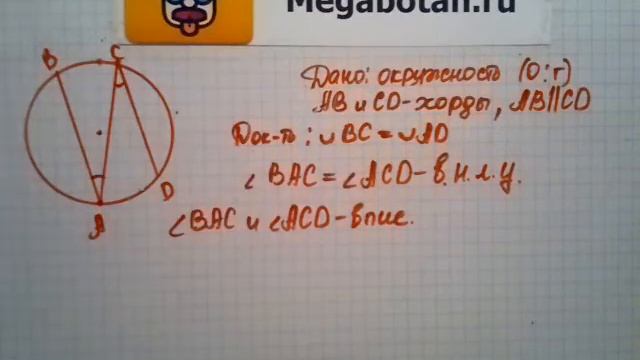 Megabotan.ru
B
C
Дано: окружность (O:r)
AB и CD-хорды, AB||CD
Док-ть: ∪BC=∪AD
∠BAC=∠ACD-в.н.л.у.
D
∠BAC и ∠ACD-впис.
A